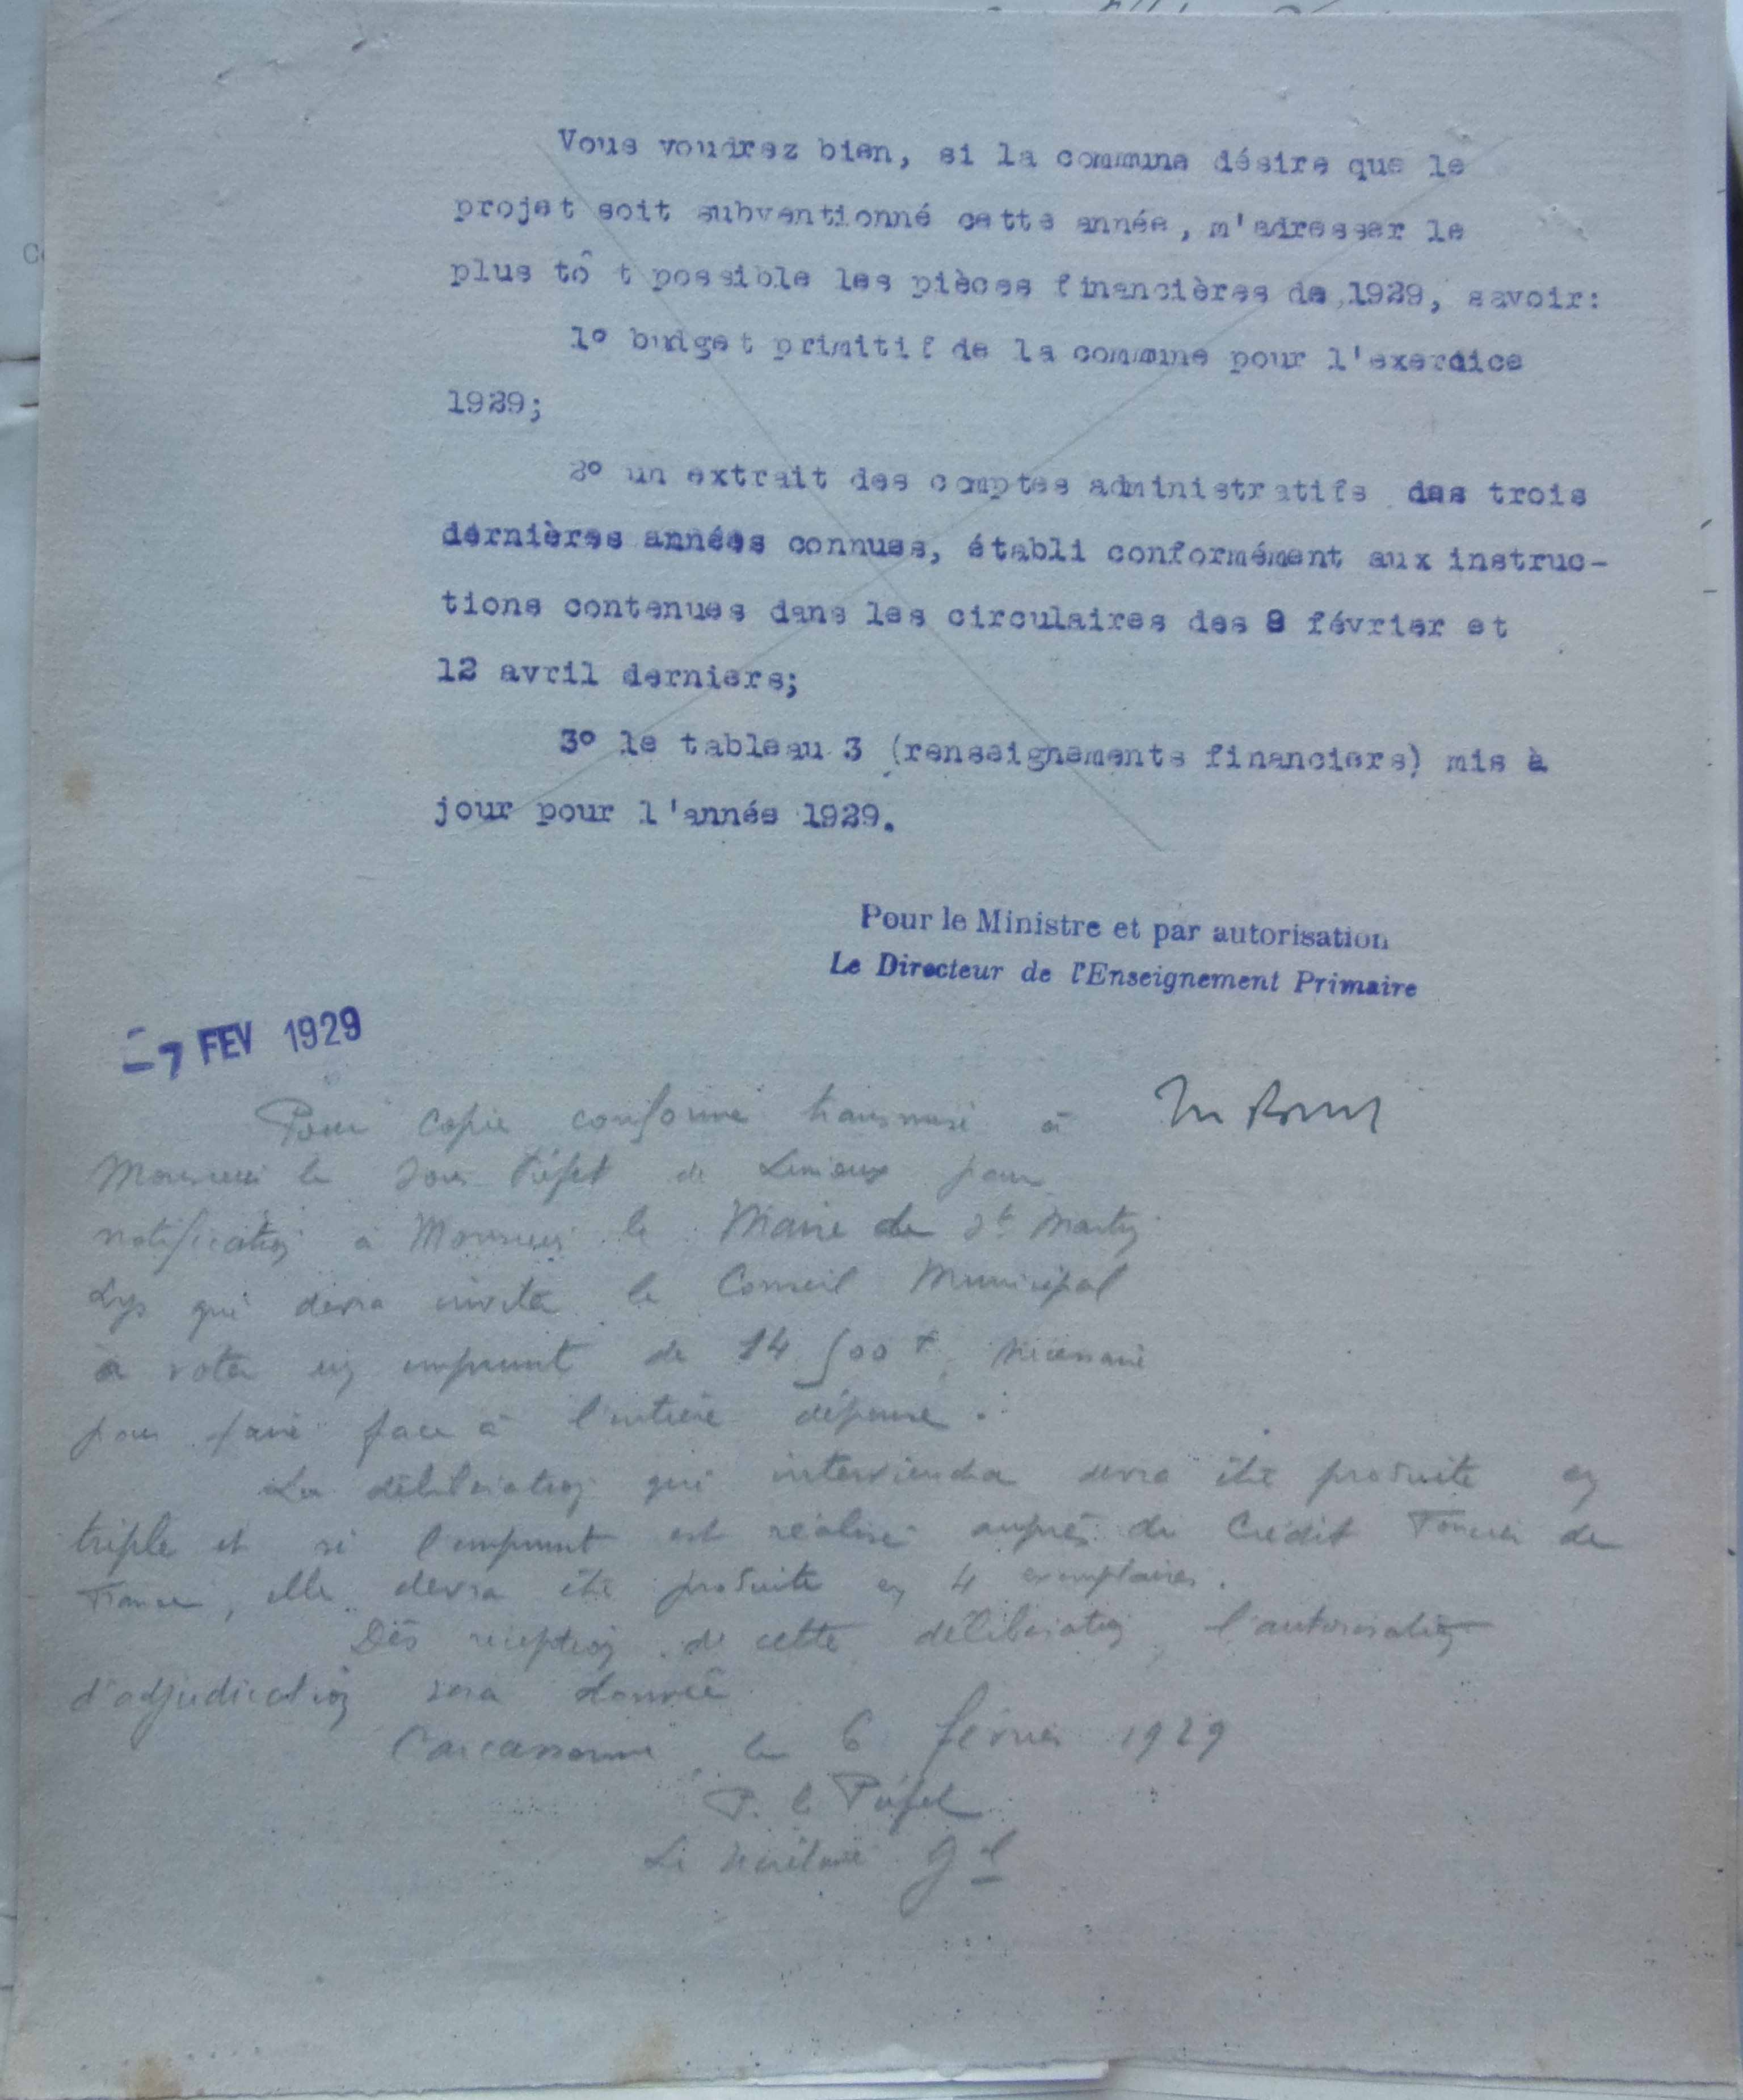 Vous voudrez bien, si la commune désire que le
projet soit subventionné cette année, m'adresser le
plus tôt possible les pièces financières de 1929, savoir:
1º budget primitif de la commune pour l'exercice
1929;
2º un extrait des comptes administratifs des trois
dernières années connues, établi conformément aux instruc-
tions contenues dans les circulaires des 8 février et
12 avril derniers;
3º le tableau 3 (renseignements financiers) mis à
jour pour l'année 1929.
Pour le Ministre et par autorisation
Le Directeur de l'Enseignement Primaire
-7 FEV 1929
Pour copie conforme transmise à
Monsieur le Sous Préfet de Limoux pour
notification à Monsieur le Maire de St Martin
Lys qui devra inviter le Conseil Municipal
à voter un emprunt de 14 500 f, nécessaire
pour faire face à l'entière dépense.
La délibération qui interviendra devra être produite en
triple et si l'emprunt est réalisé auprès du Crédit Foncier de
France, elle devra être produite en 4 exemplaires.
Dès réception de cette délibération, l'autorisation
d'adjudication sera donnée
Carcassonne, le 6 février 1929
P. le Préfet
Le Secrétaire Gl